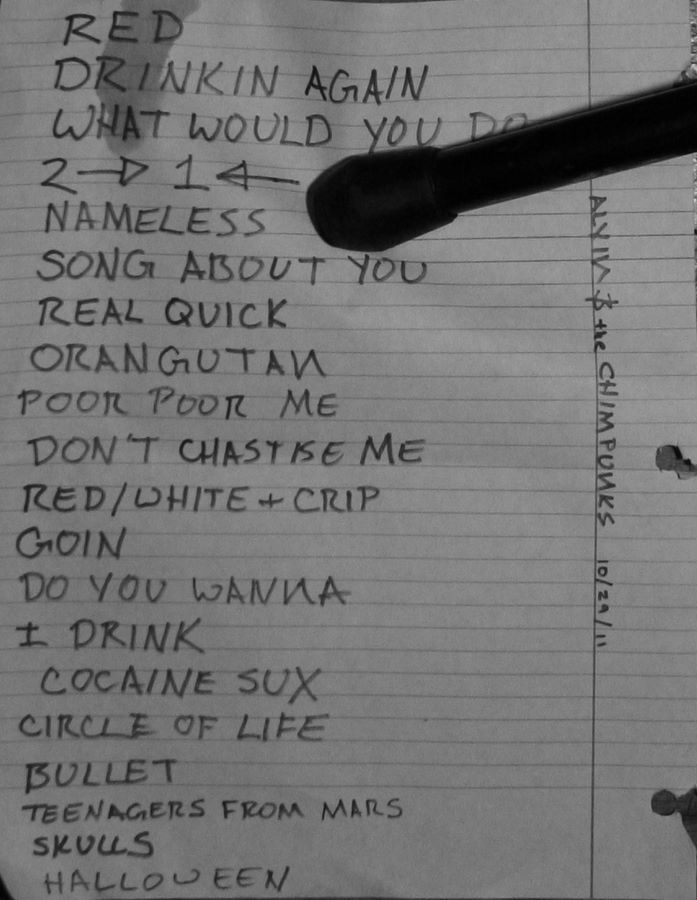 RED
DRINKIN AGAIN
WHAT WOULD YOU DO
2 → 1 ←
NAMELESS
SONG ABOUT YOU
REAL QUICK
ORANGUTAN
POOR POOR ME
DON'T CHASTISE ME
RED/WHITE + CRIP
GOIN
DO YOU WANNA
I DRINK
COCAINE SUX
CIRCLE OF LIFE
BULLET
TEENAGERS FROM MARS
SKULLS
HALLOWEEN
ALVIN & the CHIMPUNKS 10/29/11